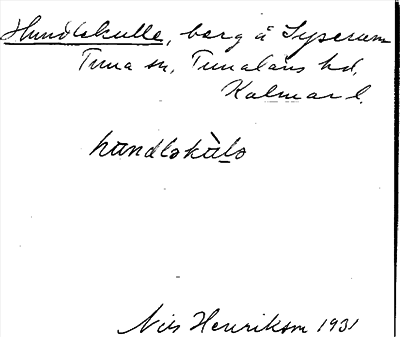 Hundlekulle, berg å Lyserum
Tuna sn, Tunaläns hd,
Kalmar l.
hundləkùlə
Nils Henrikson 1931